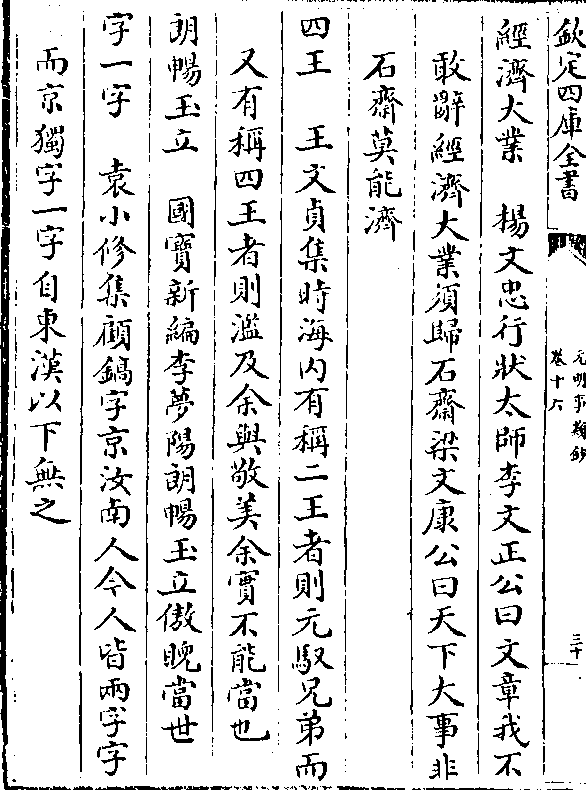 欽定四庫全書
元明事類鈔
卷十六
三十
經濟大業　楊文忠行狀太師李文正公曰文章我不
敢辭經濟大業須歸石齋梁文康公曰天下大事非
石齋莫能濟
四王　王文貞集時海内有稱二王者則元馭兄弟而
又有稱四王者則濫及余與敬美余實不能當也
朗暢玉立　國寶新編李夢陽朗暢玉立傲睨當世
字一字　袁小修集顧鎬字京汝南人今人皆兩字字
而京獨字一字自東漢以下無之